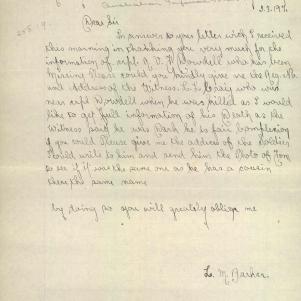 Dear Sir
In answer to your letter wich I received
this morning in thanking you very much for the
information of re pt. A. V. Worsdell who has been
Missing Please could you kindly give me the Reg. No
and Address of the Witness. L. L. who was
near re pt Worsdell when he was killed as I would
like to get full information of his Death as the
Witness said he was Dark he is fair Complexion
if you could Please give me the address of the Soldier
I could write to him and send him the Photo of Tom
to see if it was the same one as he has a cousin
there the same name
by doing so you will greately oblige me
L. M. Barker